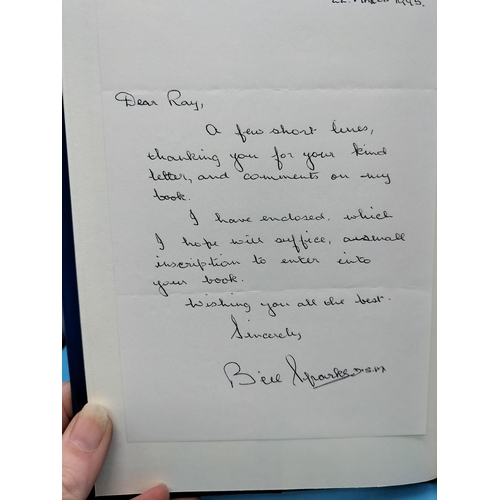 22. March 1995.
Dear Ray,
A few short lines,
thanking you for your kind
letter, and comments on my
book.
I have enclosed, which
I hope will suffice, a small
inscription to enter into
your book.
Wishing you all the best.
Sincerely,
Bill Sparks. D.S.M